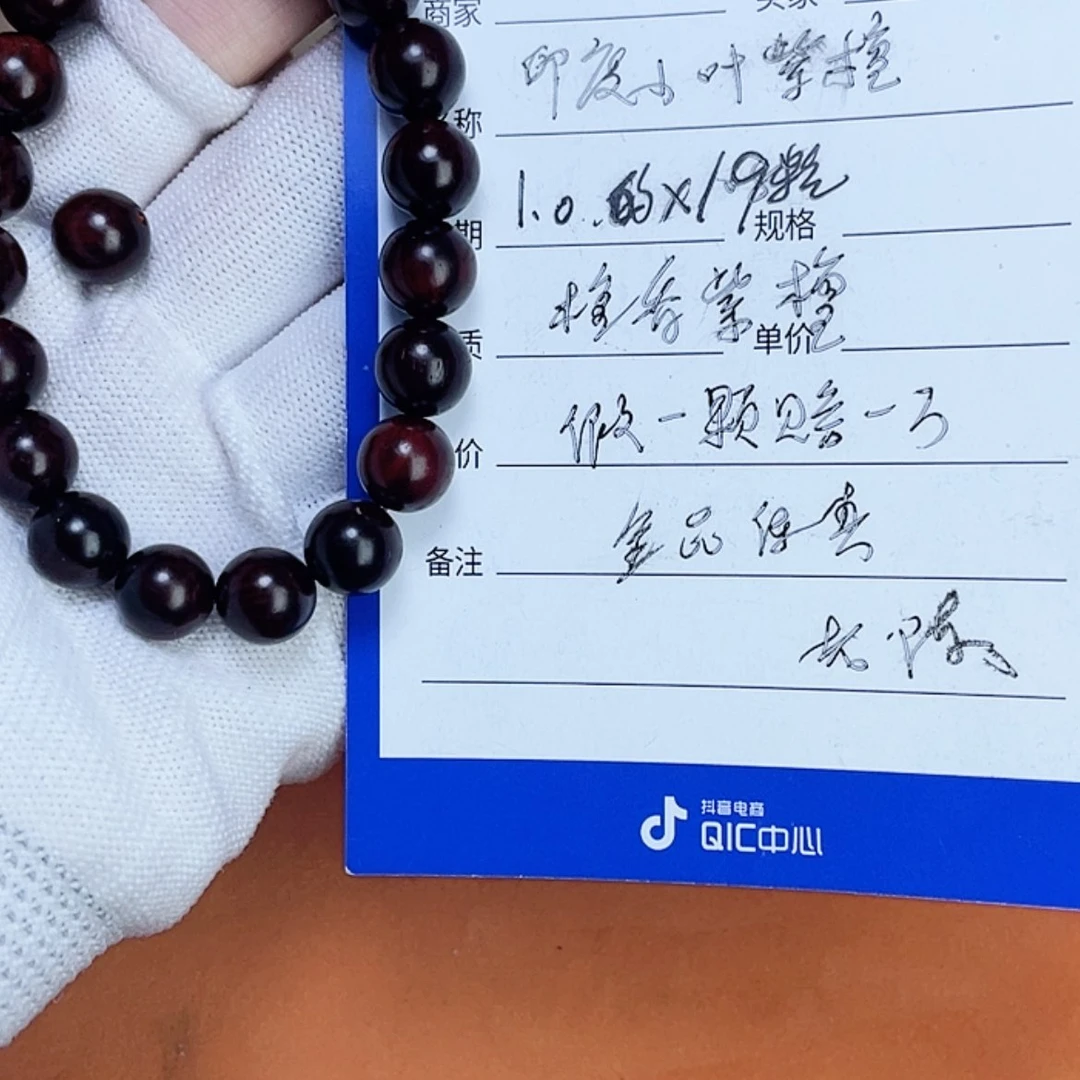 商家 买家
印度小叶紫檀
名称
1.0的x19颗
期 规格
檀香紫檀
质 单价
假一颗赔一万
价
金品保真
备注
老陈
抖音电商
QIC中心